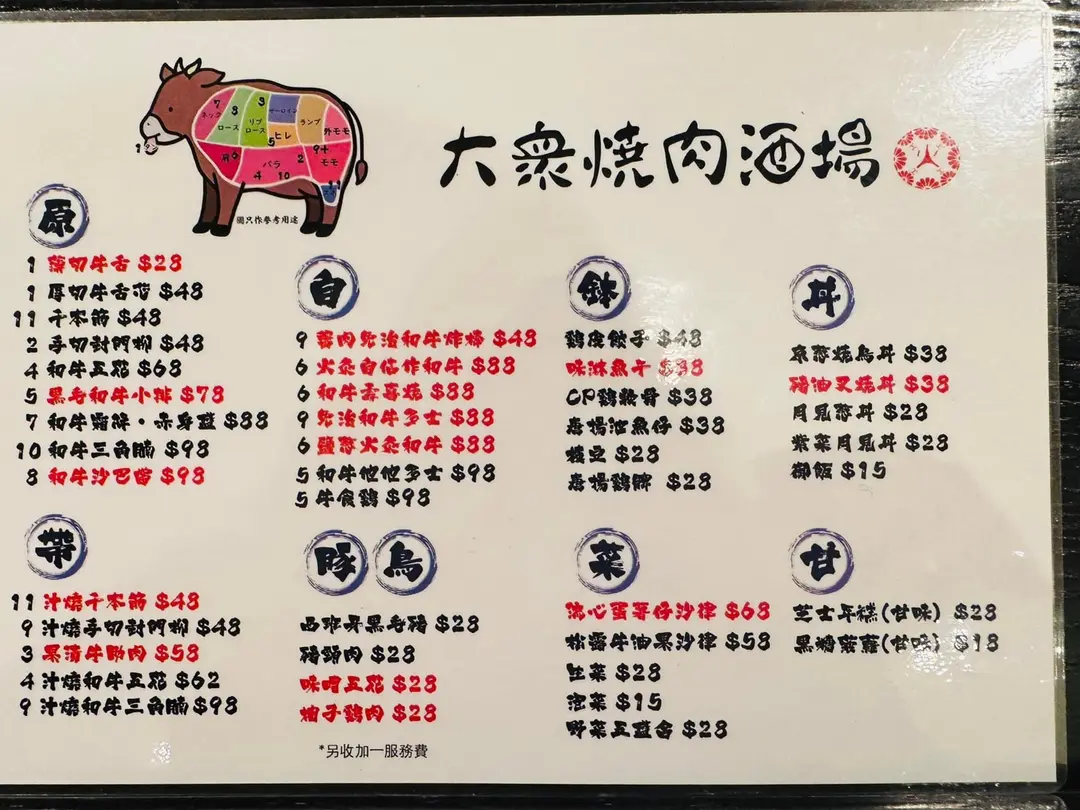 7 ネック
8 ロース
3 リブロース
サーロイン
ヒレ
5
ランプ
外モモ
6
バラ
2
9+
モモ
4 10
11
1
圖只作參考用途
大衆燒肉酒場
原
1 薄切牛舌 $28
1 厚切牛舌芯 $48
11 千本筋 $48
2 手切封門柳 $48
4 和牛五花 $68
5 黑毛和牛小排 $78
7 和牛霜降・赤身盛 $88
10 和牛三角腩 $98
8 和牛沙巴當 $98
自
9 肉炙治和牛炸棒 $48
6 火炙自信作和牛 $88
6 和牛壽喜燒 $88
9 炙治和牛多士 $88
6 鹽蔥火炙和牛 $88
5 和牛他他多士 $98
5 牛食鷄 $98
鉢
鷄皮餃子 $48
味淋魚干 $38
CP鷄軟骨 $38
唐揚池魚仔 $38
枝豆 $28
唐揚鷄髀 $28
丼
京蔥燒鳥丼 $38
豬油叉燒丼 $38
月見蔥丼 $28
紫菜月見丼 $28
御飯 $15
帶
11 汁燒千本筋 $48
9 汁燒手切封門柳 $48
3 果漬牛肋肉 $58
4 汁燒和牛五花 $62
9 汁燒和牛三角腩 $98
豚 鳥
西班牙黑毛豬 $28
豬頸肉 $28
味噌五花 $28
柚子鷄肉 $28
*另收加一服務費
菜
流心蛋薯仔沙律 $68
松露牛油果沙律 $58
生菜 $28
泡菜 $15
野菜五盛合 $28
甘
芝士年糕(甘味) $28
黑糖菠蘿(甘味) $18